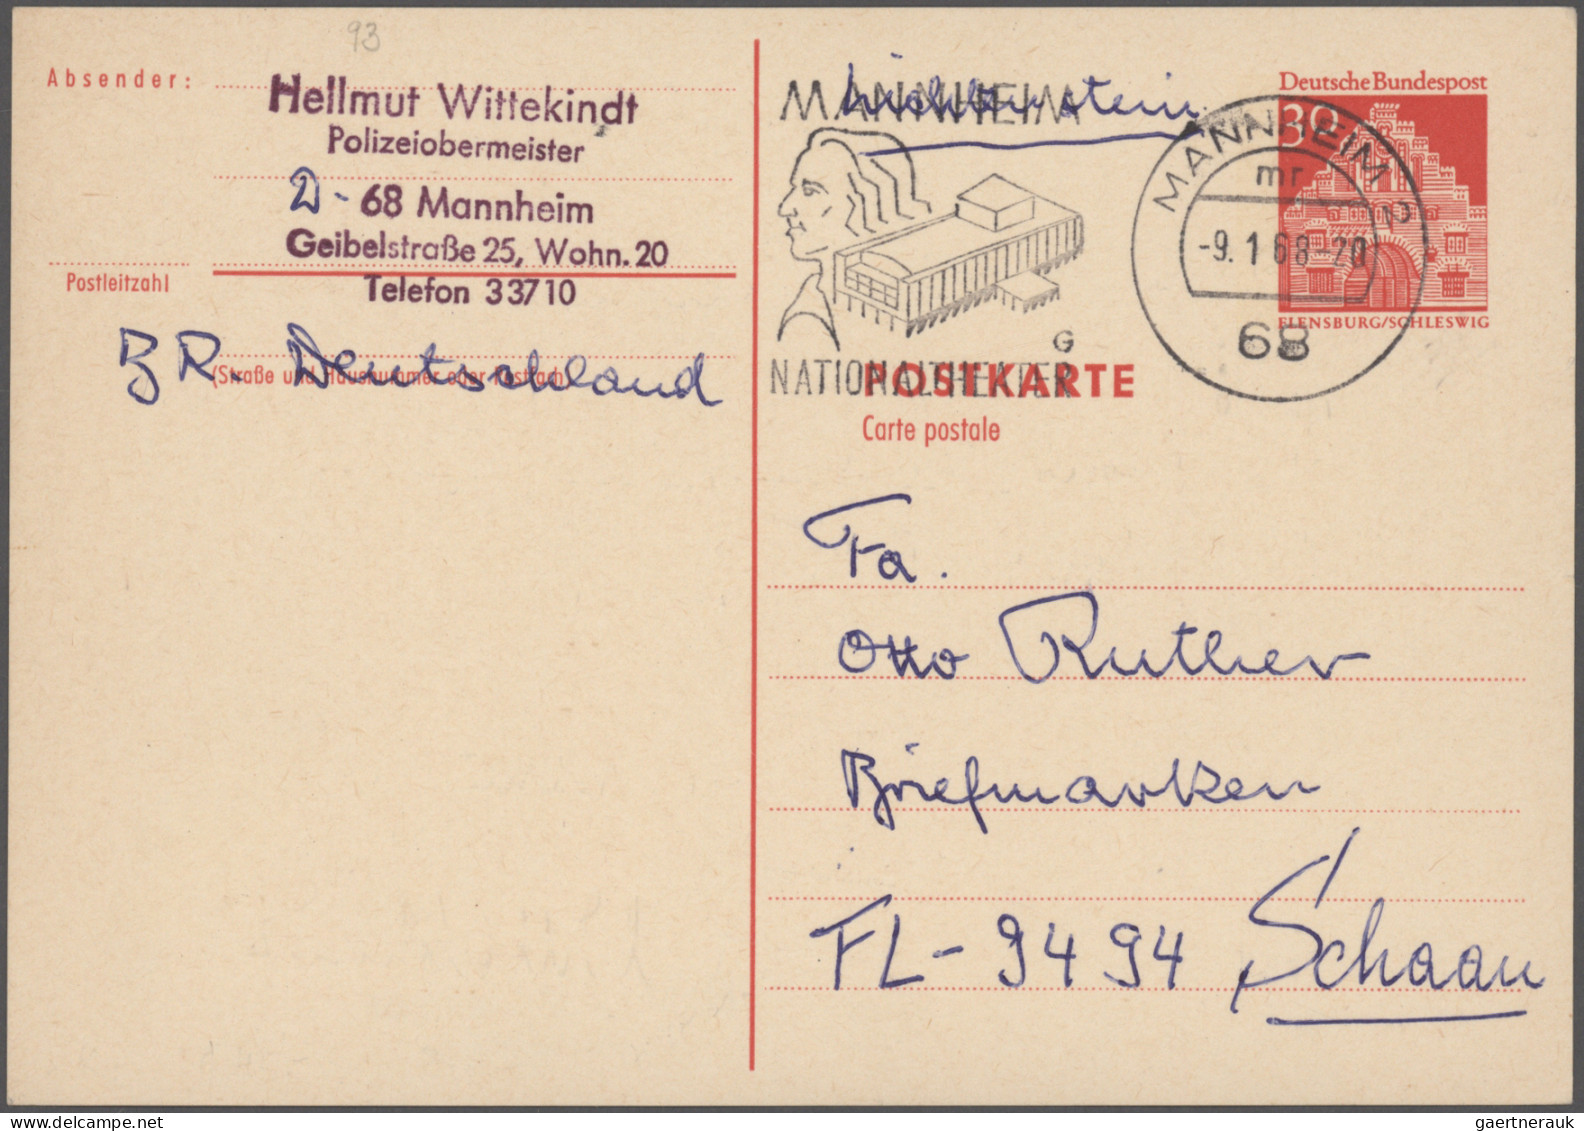 93
Absender:
Hellmut Wittekindt
Polizeiobermeister
D - 68 Mannheim
Geibelstraße 25, Wohn. 20
Postleitzahl
Telefon 33710
(Straße und Hausnummer oder Postfach)
BR. Deutschland
MANNHEIM
Liechtenstein
G
NATIONALTHEATER
MANNHEIM 2
mr
-9.1.68-20
68
Deutsche Bundespost
30
FLENSBURG/SCHLESWIG
POSTKARTE
Carte postale
Fa.
Otto Ruther
Briefmarken
FL-9494 Schaan
gaertnerauk @ delcampe.net